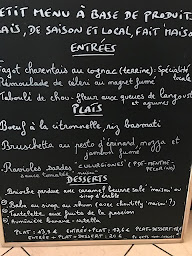 PETIT MENU A BASE DE PRODUITS
FRAIS, DE SAISON ET LOCAL, FAIT MAISON
ENTRÉES
Fagot charentais au cognac (terrine): Spécialité locale
Rémoulade de céleri au magret fumé
Taboulé de chou-fleur aux queues de langoustines et agrumes
PLATS
Bœuf à la citronnelle, riz basmati
Bruschetta au pesto d'épinard, mozza et jambon
Ravioles Dardes sauce tomatée
DESSERTS
Brioche perdue au caramel beurre salé "maison" ou sirop d'érable
Baba au sirop, au rhum (avec chantilly "maison")
Tartelette aux fruits de la passion
PLAT: ENTRÉE + PLAT: PLAT + DESSERT:
ENTRÉE + PLAT + DESSERT: